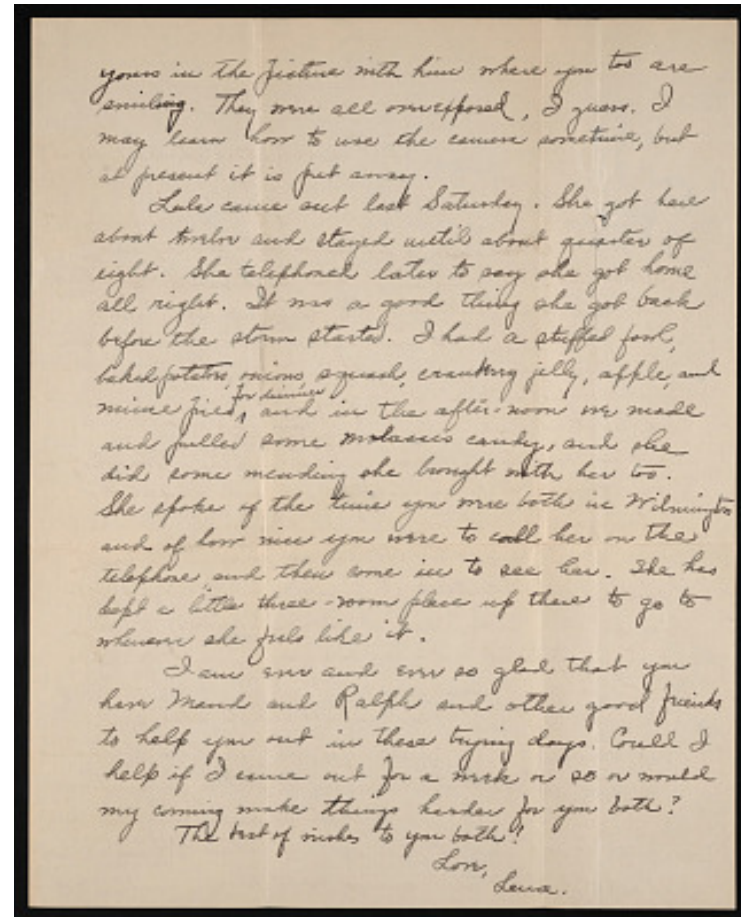 yours in the picture with him where you too are
smiling. They were all overexposed, I guess. I
may learn how to use the camera sometime, but
at present it is put away.
Lula came out last Saturday. She got here
about twelve and stayed until about quarter of
eight. She telephoned later to say she got home
all right. It was a good thing she got back
before the storm started. I had a stuffed fowl,
baked potatoes, onions, squash, cranberry jelly, apple, and
mince pies, for dinner and in the after-noon we made
and pulled some molasses candy, and she
did some mending she brought with her too.
She spoke of the time you were both in Wilmington
and of how nice you were to call her on the
telephone and then come in to see her. She has
kept a little three-room place up there to go to
whenever she feels like it.
I am ever and ever so glad that you
have Maud and Ralph and other good friends
to help you out in these trying days. Could I
help if I came out for a week or so or would
my coming make things harder for you both?
The best of wishes to you both!
Love,
Lena.